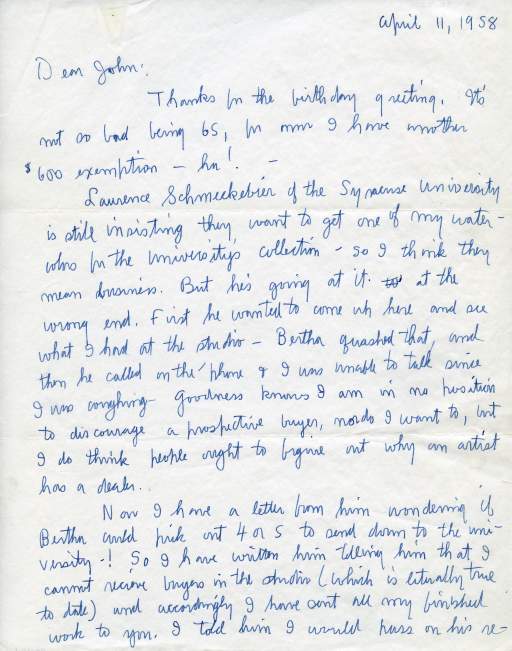 April 11, 1958
Dear John:
Thanks for the birthday greeting. It's
not so bad being 65, for now I have another
$600 exemption – ha! –
Laurence Schmeckebier of the Syracuse University
is still insisting they want to get one of my water-
colors for the University's collection – so I think they
mean business. But he's going at it at the
wrong end. First he wanted to come up here and see
what I had at the studio – Bertha quashed that, and
then he called on the 'phone & I was unable to talk since
I was coughing – Goodness knows I am in no position
to discourage a prospective buyer, nor do I want to, but
I do think people ought to figure out why an artist
has a dealer..
Now I have a letter from him wondering if
Bertha could pick out 4 or 5 to send down to the uni-
versity -! So I have written him telling him that I
cannot receive buyers in the studio (which is literally true
to date) and accordingly I have sent all my finished
work to you. I told him I would pass on his re-